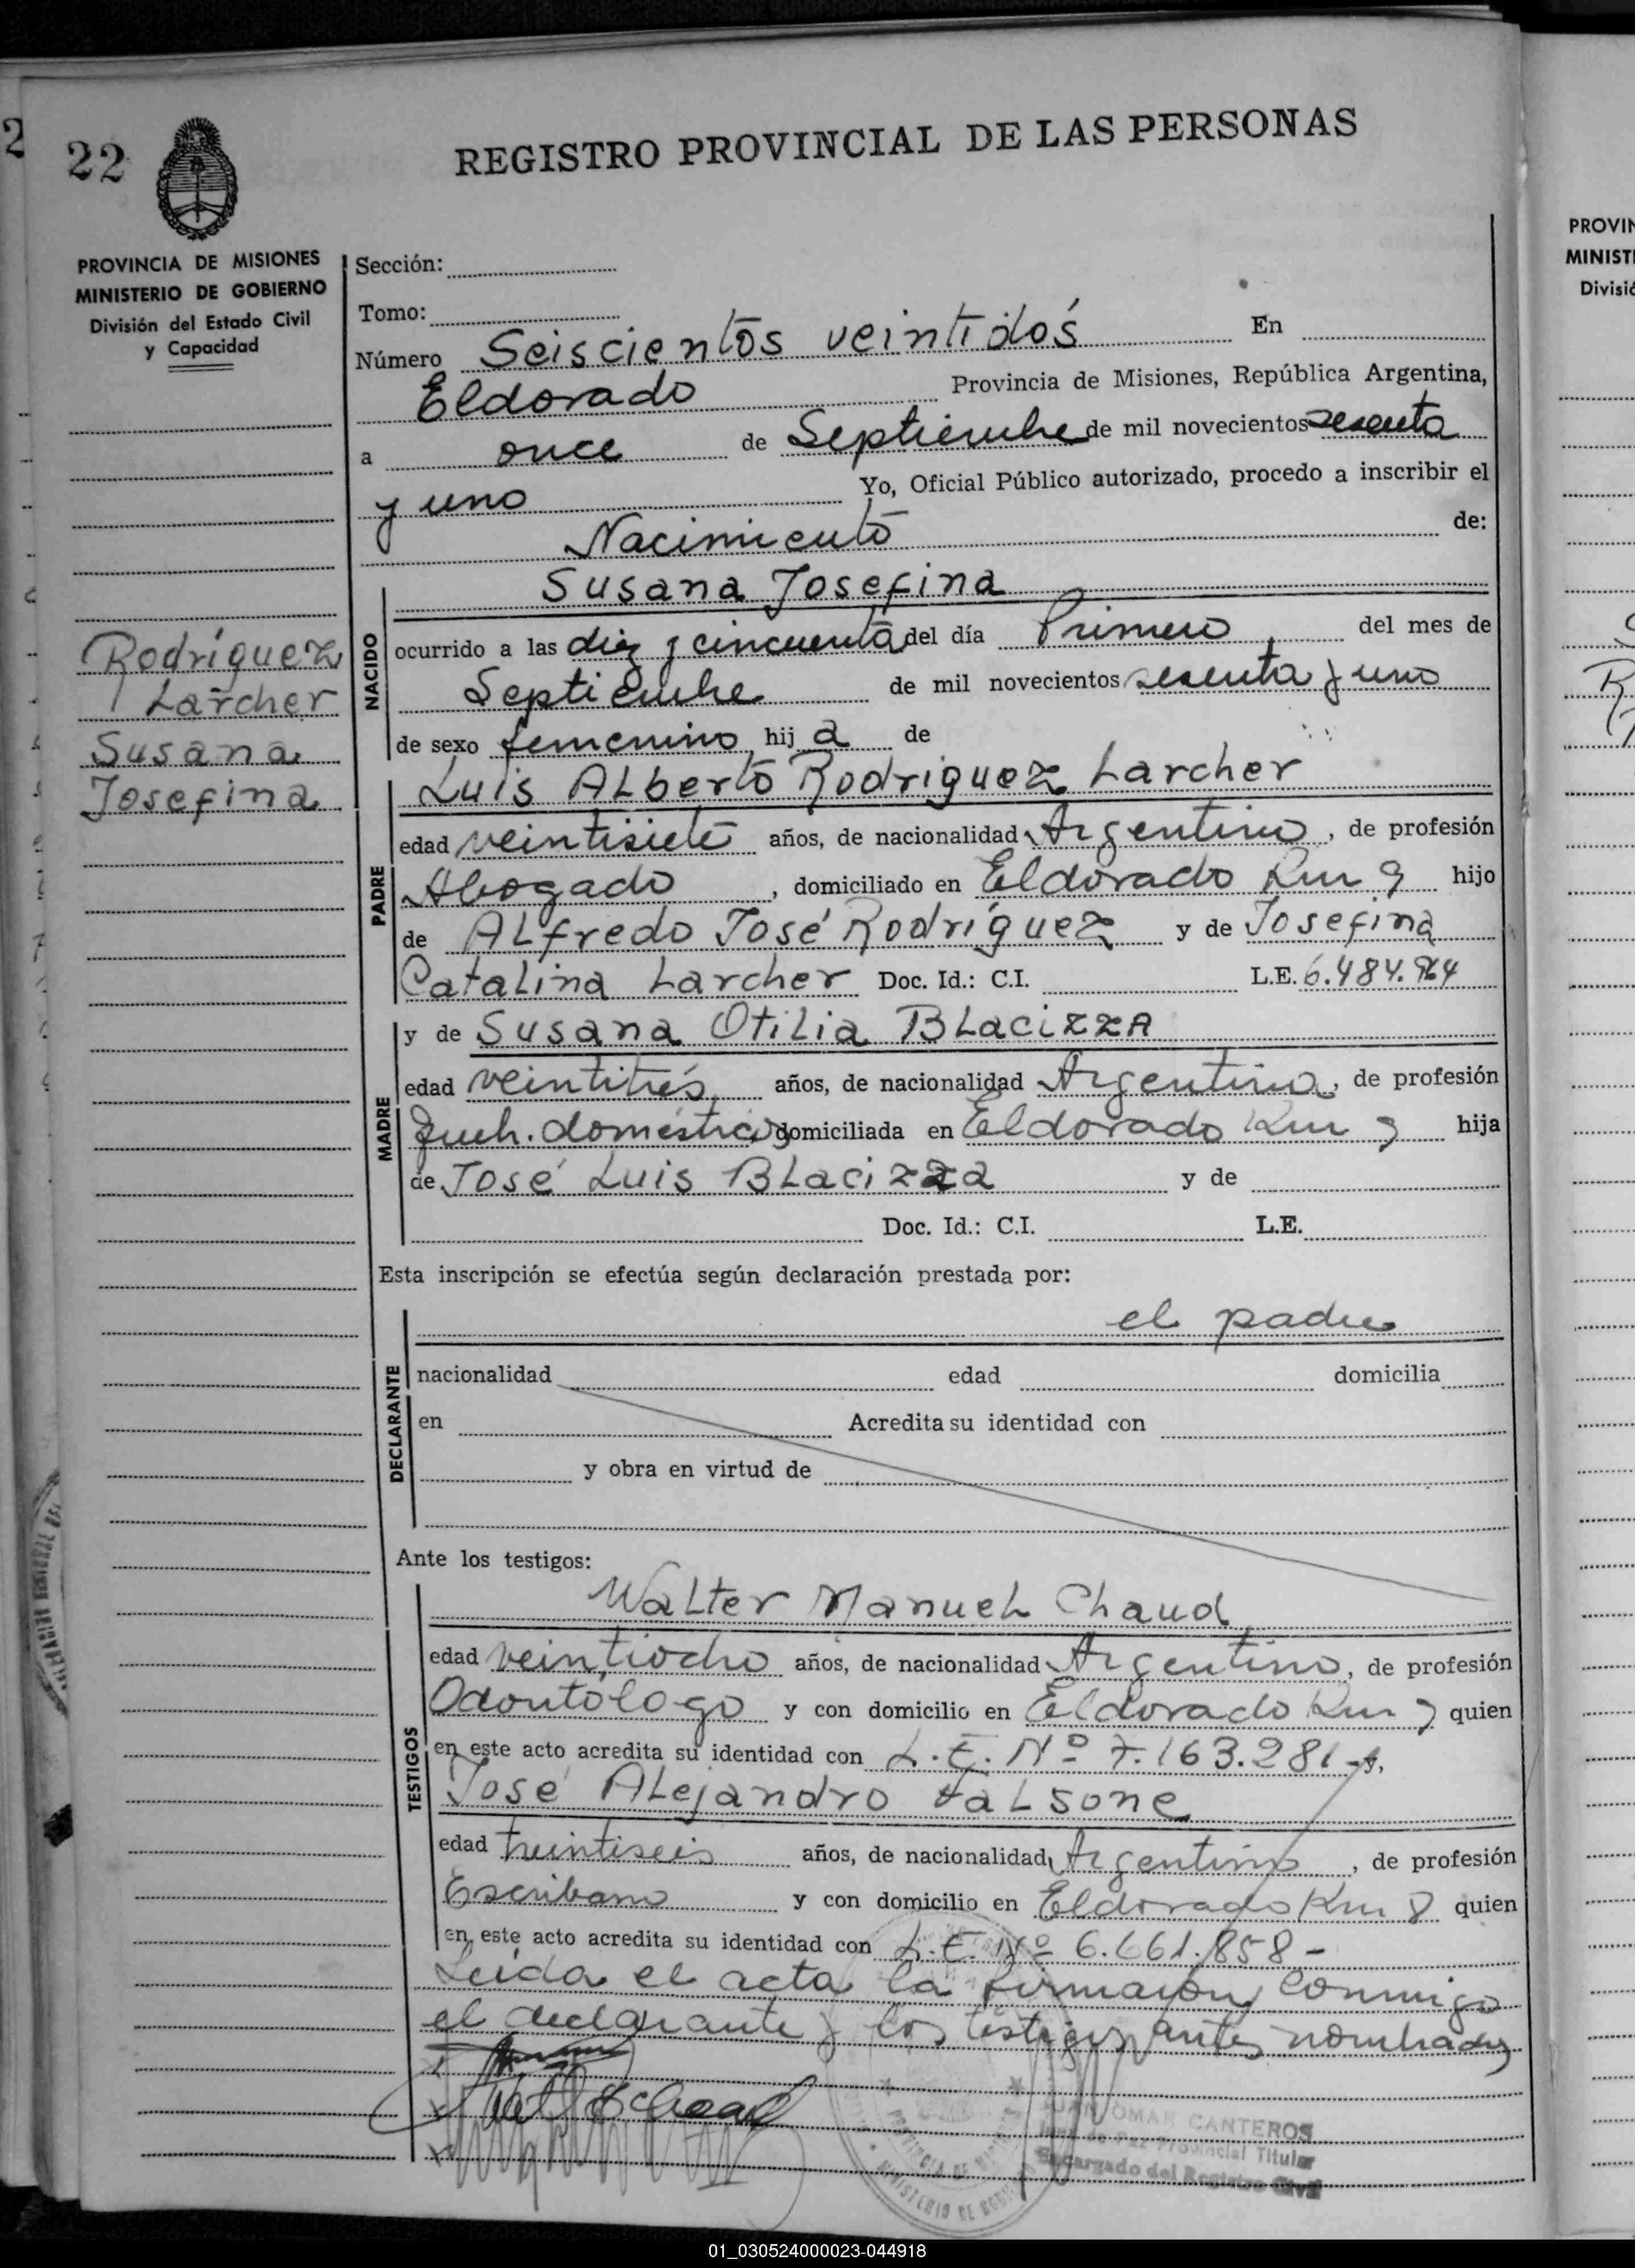 2
22
REGISTRO PROVINCIAL DE LAS PERSONAS
PROVINCIA DE MISIONES
MINISTERIO DE GOBIERNO
División del Estado Civil
y Capacidad
Sección:
Tomo:
Número Seiscientos veintidós En
Eldorado Provincia de Misiones, República Argentina,
a once de Septiembre de mil novecientos sesenta
y uno Yo, Oficial Público autorizado, procedo a inscribir el
Nacimiento de:
Rodríguez
Larcher
Susana
Josefina
NACIDO
Susana Josefina
ocurrido a las diez y cincuenta del día Primero del mes de
Septiembre de mil novecientos sesenta y uno
de sexo femenino hija de
PADRE
Luis Alberto Rodriguez Larcher
edad veintisiete años, de nacionalidad Argentino, de profesión
Abogado, domiciliado en Eldorado Km 9 hijo
de Alfredo José Rodríguez y de Josefina
Catalina Larcher Doc. Id.: C.I. L.E. 6.484.
MADRE
y de Susana Otilia BLacizzA
edad veintitrés años, de nacionalidad Argentina, de profesión
domésticos domiciliada en Eldorado Km 9 hija
de José Luis BLacizza y de
Doc. Id.: C.I. L.E.
Esta inscripción se efectúa según declaración prestada por:
DECLARANTE
el padre
nacionalidad edad domicilia
en Acredita su identidad con
y obra en virtud de
Ante los testigos:
TESTIGOS
Walter Manuel Chaud
edad veintiocho años, de nacionalidad Argentino, de profesión
Odontólogo y con domicilio en Eldorado Km 9 quien
en este acto acredita su identidad con L.E. Nº 7.163.281 - y,
José Alejandro Falsone
edad treintiseis años, de nacionalidad Argentino, de profesión
Escribano y con domicilio en Eldorado Km 8 quien
en este acto acredita su identidad con L.E. Nº 6.661.858 -
Leída el acta la firmaron conmigo
el declarante y los testigos antes nombrados
JUAN OMAR CANTEROS
Juez de Paz Provincial Titular
Encargado del Registro Civil
PROVINCIA DE MISIONES
MINISTERIO DE GOBIERNO
PROVIN
MINISTE
Divisió
01_030524000023-044918